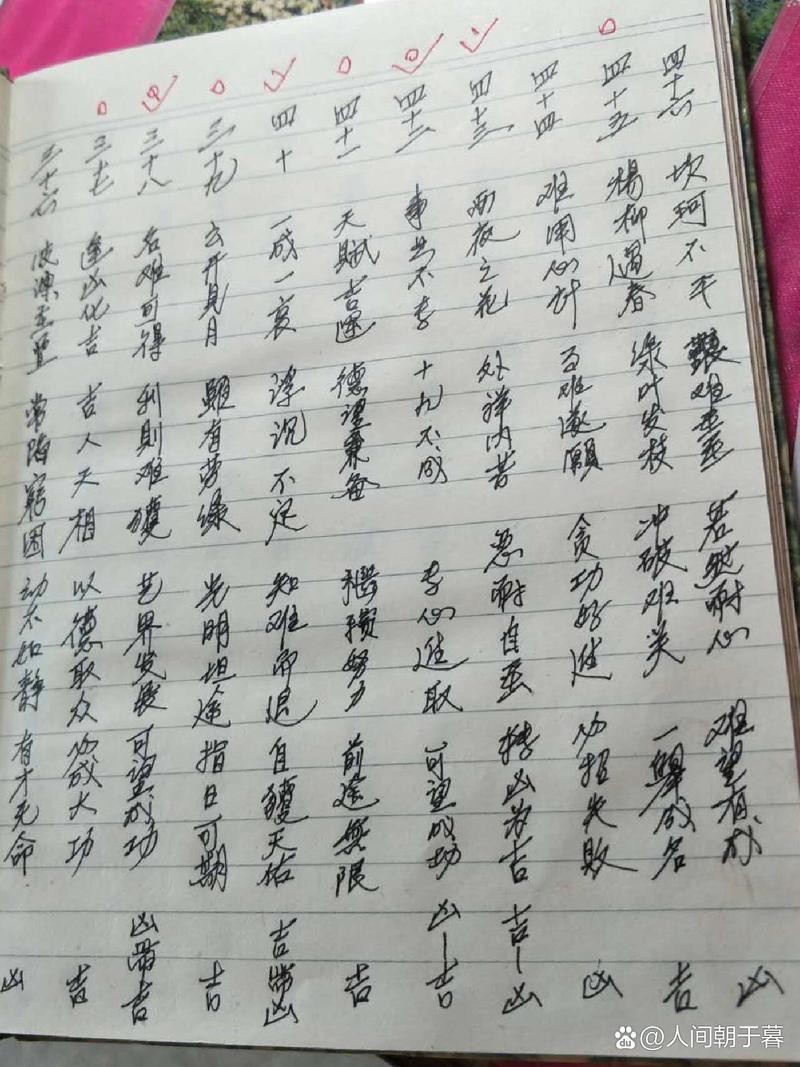 三十六 波澜重叠 常陷窮困 动不如静 有才无命 凶
三十七 逢凶化吉 吉人天相 以德取众 必成大功 吉
三十八 名难可得 利則难獲 艺界发展 可望成功 凶带吉
三十九 云开見月 雖有劳绿 光明坦途 指日可期 吉
四十 一成一衰 浮沉不定 知难而退 自獲天佑 吉带凶
四十一 天赋吉运 德望兼备 继续努力 前途無限 吉
四十二 事业不专 十九不成 专心进取 可望成功 凶—吉
四十三 雨夜之花 外祥内苦 忍耐自重 转凶为吉 吉—凶
四十四 难用心计 百难遂願 贪功好进 必招失敗 凶
四十五 楊柳遇春 绿叶发枝 冲破难关 一舉成名 吉
四十六 坎坷不平 艱难重重 若無耐心 难望有成 凶
Bai du @人间朝于暮